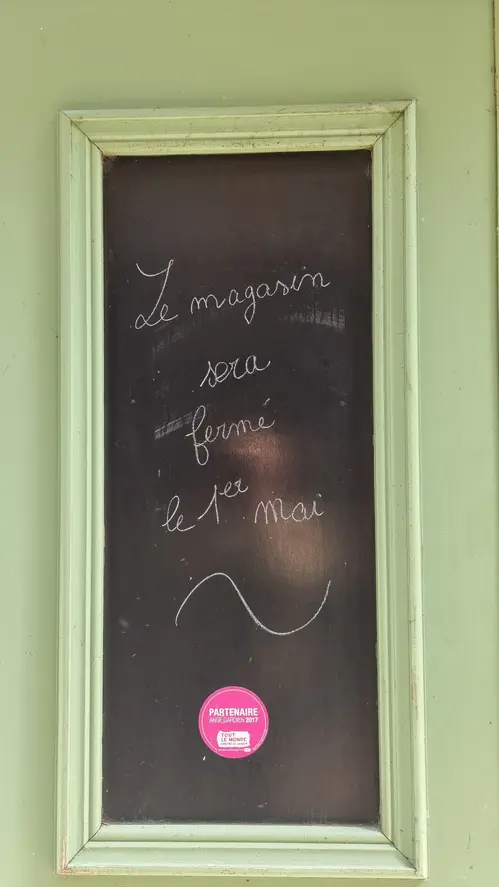 Le magasin
sera
fermé
le 1er mai
PARTENAIRE
ANGE GARDIEN 2017
TOUT
LE MONDE
CONTRE LE CANCER